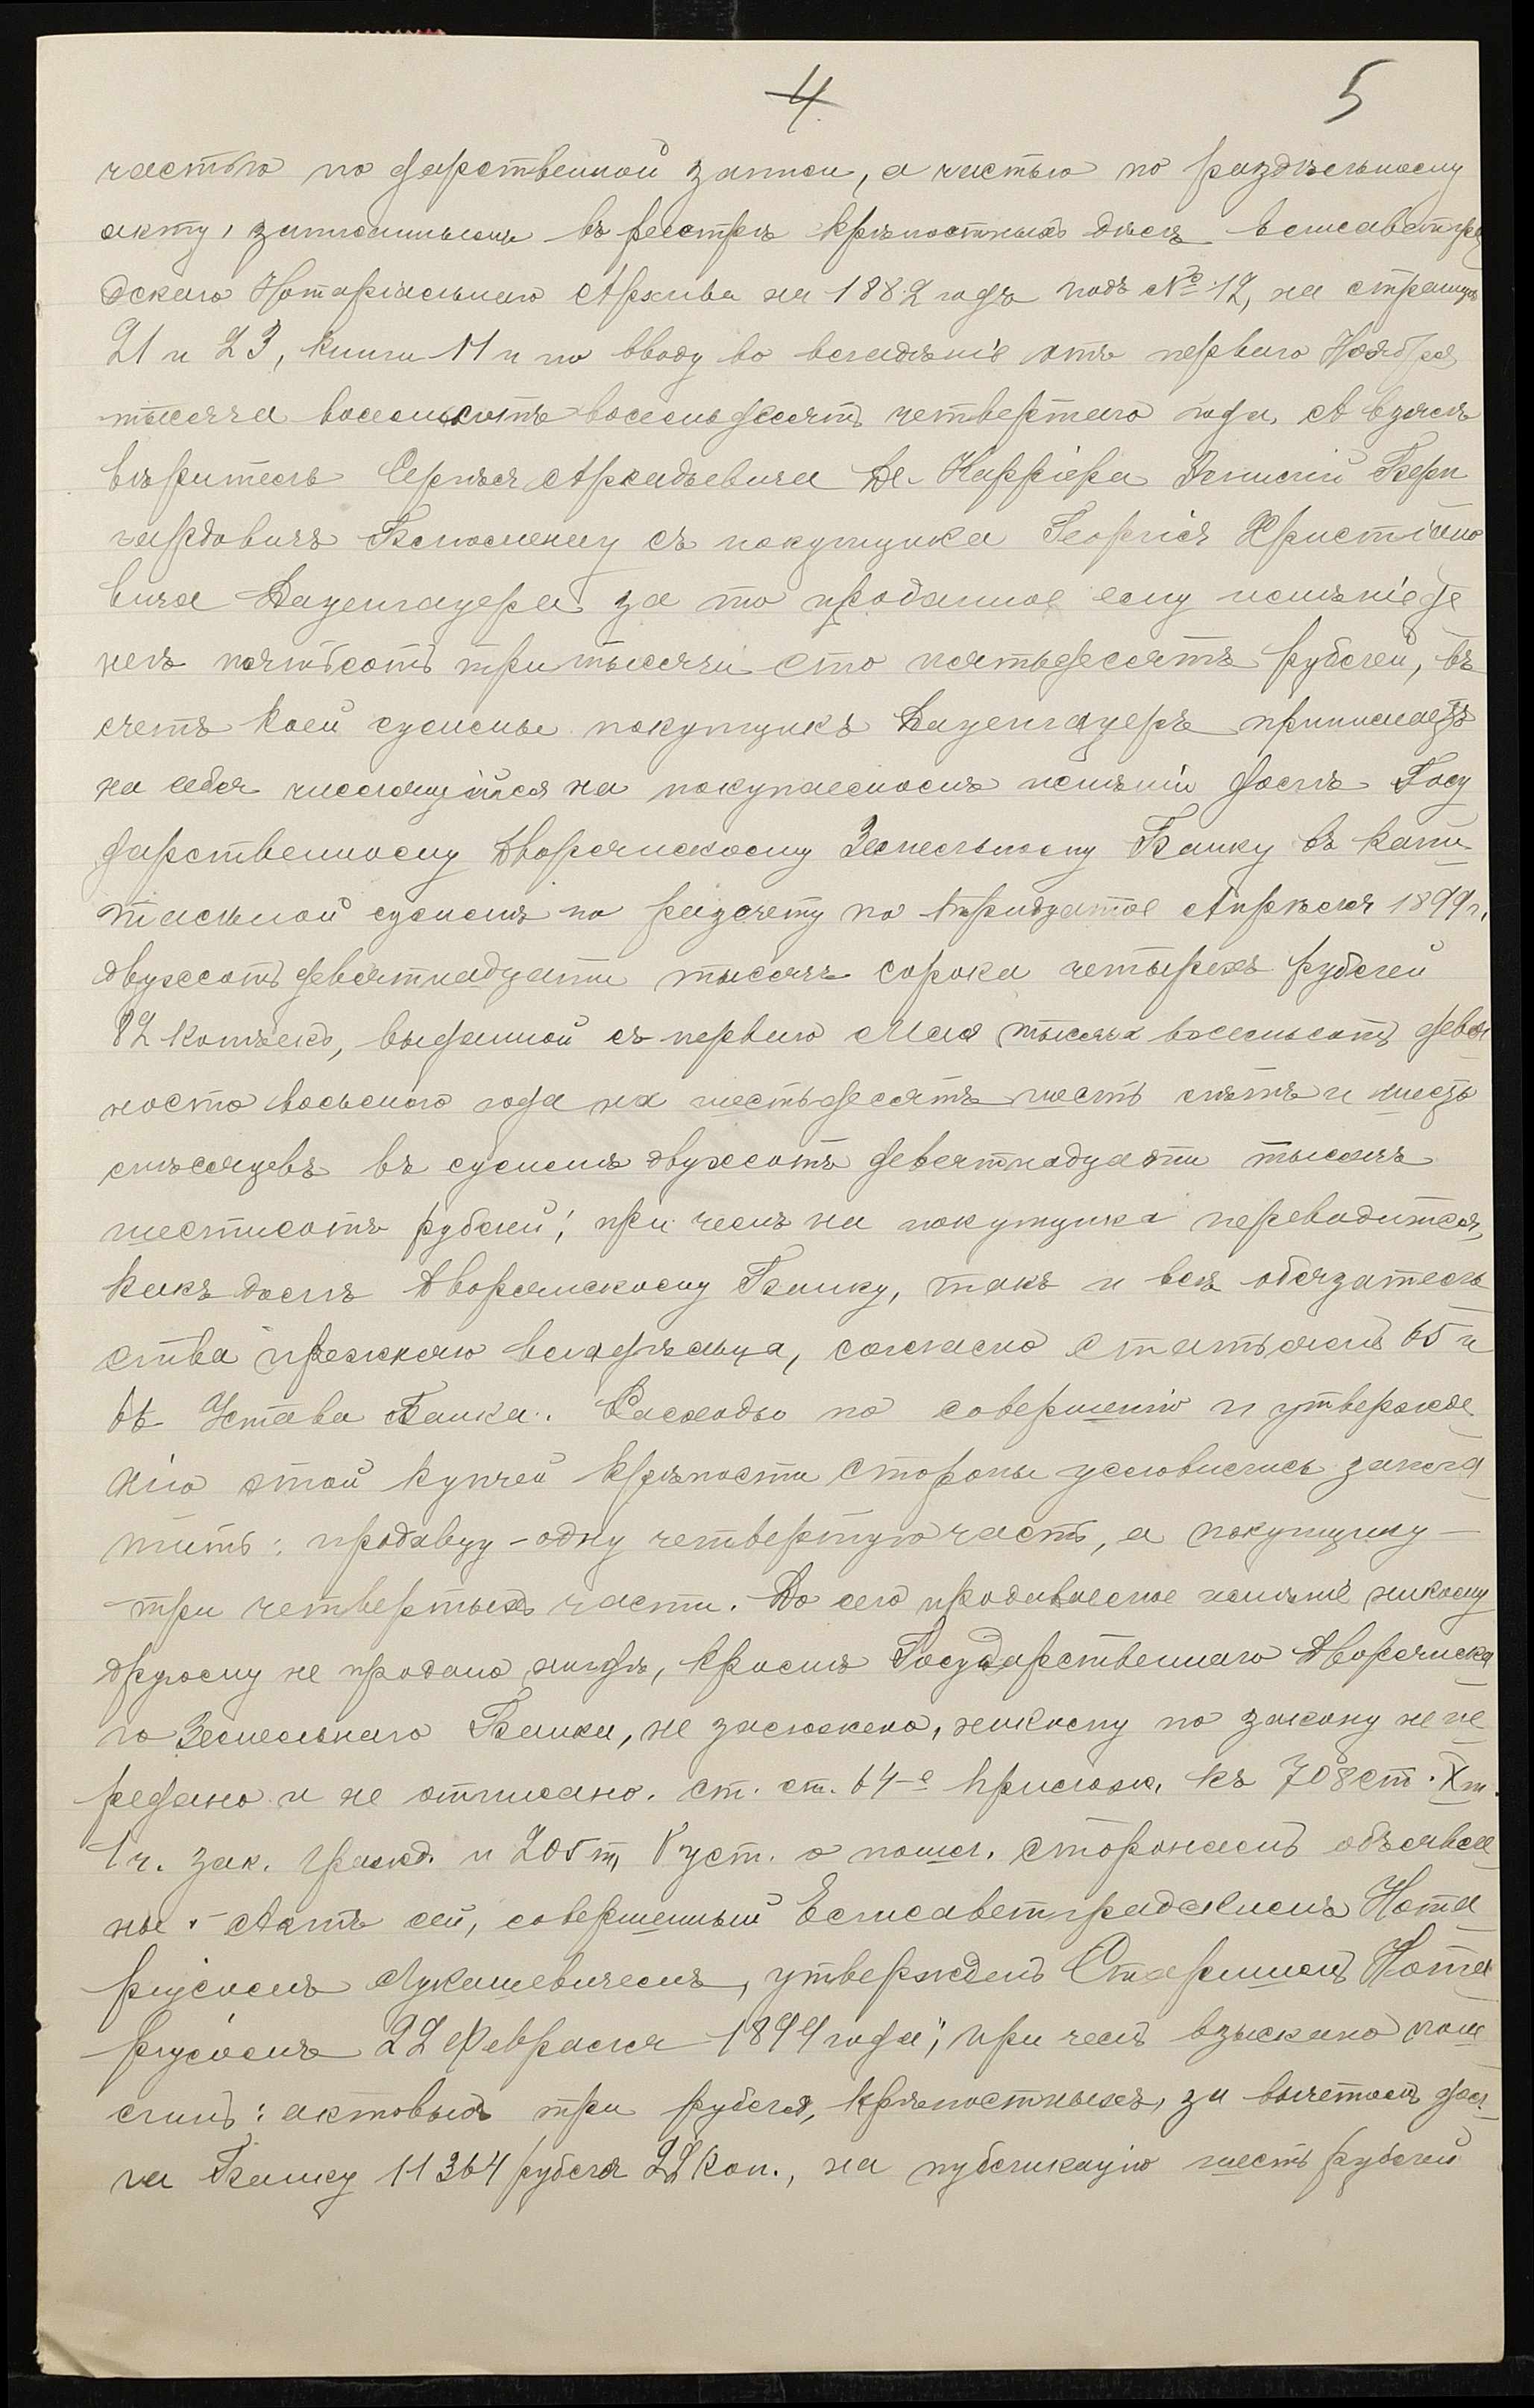 4 5
частью по дарственной записи, а частью по раздѣльному
акту, записаннымъ въ реестрѣ крѣпостныхъ дѣлъ Елисаветгра
дскаго Нотаріальнаго Архива на 1882 годъ подъ № 12, на страницѣ
21 и 23, книги 11 и по вводу во владѣніе отъ перваго Ноября
тысяча восемьсотъ восемьдесятъ четвертаго года. А взялъ
вѣритель Сергѣя Аркадьевича Де-Карріера Бern
гардовичъ съ покупщика Георгія Христіано
вича Даценгауера за то проданное ему имѣніе де
негъ пятьсотъ три тысячи сто пятьдесятъ рублей, въ
счетъ коей суммы покупщикъ Даценгауеръ принимаетъ
на себя числящійся на покупаемомъ имѣніи долгъ Госу
дарственному Дворянскому Земельному Банку въ капи
тальной суммѣ по разсчету по тридцатое Апрѣля 1899 г.
двухсотъ девятнадцати тысячъ сорока четырехъ рублей
82 копѣекъ, выданной съ перваго Мая тысяча восемьсотъ девя
носто восьмого года на шестьдесятъ шесть лѣтъ и шесть
мѣсяцевъ въ суммѣ двухсотъ девятнадцати тысячъ
шестисотъ рублей; при чемъ на покупщика переводится,
какъ долгъ Дворянскому Банку, такъ и всѣ обязатель
ства прежняго владѣльца, согласно статьямъ 65 и
66 Устава Банка. Расходы по совершенію и утвержде
нію этой купчей крѣпости стороны условились запла
тить: продавцу – одну четвертую часть, а покупщику –
три четвертыхъ части. До сего продаваемое имѣніе никому
другому не продано нигдѣ, кромѣ Государственнаго Дворянска
го Земельнаго Банка, не заложено, никому по закону не пе
редано и не отписано. ст. ст. 64-е прилож. къ 708 ст. X т.
1 ч. зак. гражд. и 205 ст. V уст. о пошл. сторонамъ объявле
ны. Актъ сей, совершенный Елисаветградскимъ Нота
ріусомъ Лукашевичемъ, утвержденъ Старшимъ Нота
ріусомъ 22 Февраля 1899 года; при чемъ взыскано пош
линъ: актовыхъ три рубля, крѣпостныхъ, за вычетомъ дол
га Банку 11364 рубля 22 коп., на публикацію шесть рублей